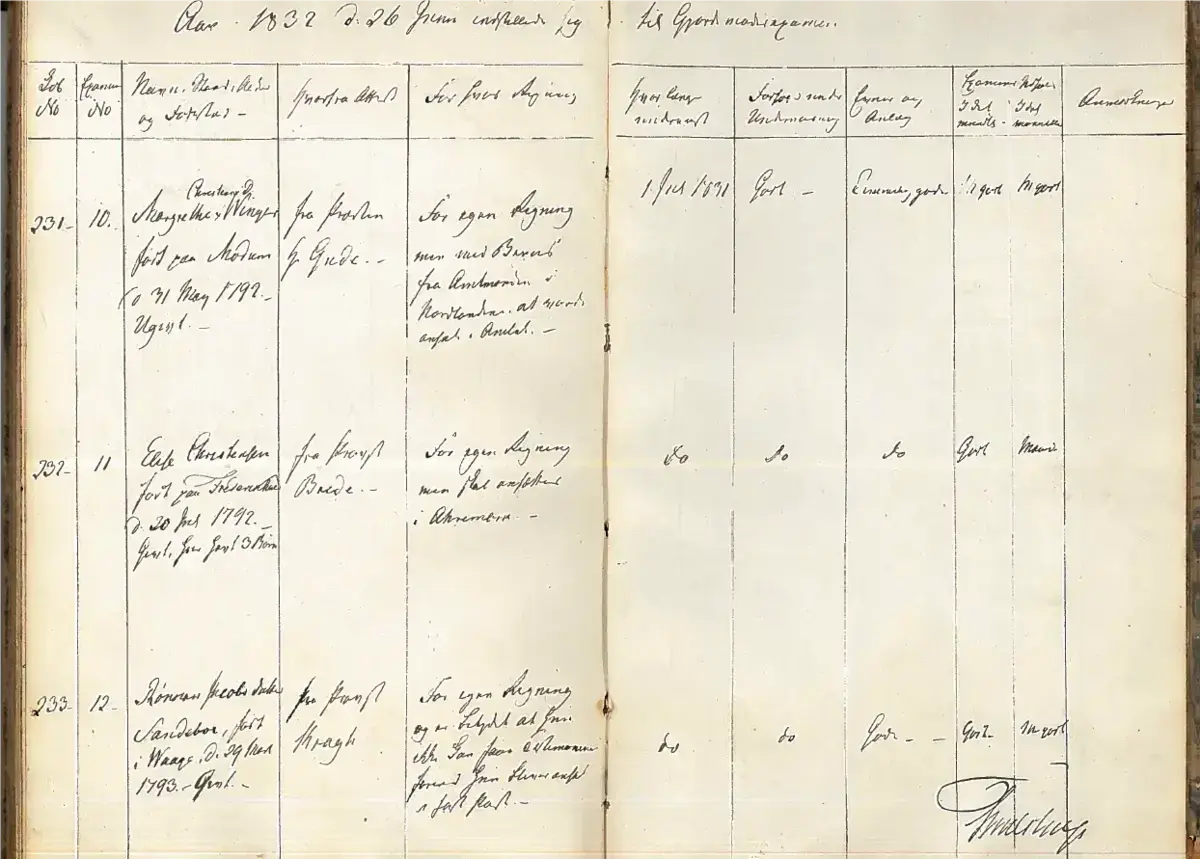 Aar 1832 d. 26 Juni indstillede sig til Gjordemoderexamen.
Løb No
Examens No
Navn, Stand, Alder og Fødested –
Hvorfra Attest
For hvis Regning
Hvor længe underviist
Forhold under Underviisning
Evner og Anlæg
Examens Udfald
I det mundtl.
I det manuelle
Anmærkninger
231–
10.
Christiane D.
Margrethe Winger
født paa Modum
d 31 May 1792.–
Ugivt. –
fra Præsten
Hr Gude. –
For egen Regning
men med Beviis
fra Amtmanden i
Nordlandene at vorde
ansat i Amtet. –
1 Juli 1831
Godt –
Temmelig gode
M godt
M godt
232–
11
Else Christensen
født paa
d. 20 Juli 1792. –
Givt, har havt 3 Børn
fra Provst
Brede. –
For egen Regning
men skal ansættes
i
do
do
do
Godt
233–
12–
Rønnau Jacobsdatter
Sandeboe, født
i Waage, d. 29 Mart
1793. – Givt. –
fra Provst
Kragh
For egen Regning
og er betydet at hun
ikke kan faae Testimonium
forend hun bliver ansat
i fast Post. –
do
do
Gode – –
Godt
M godt